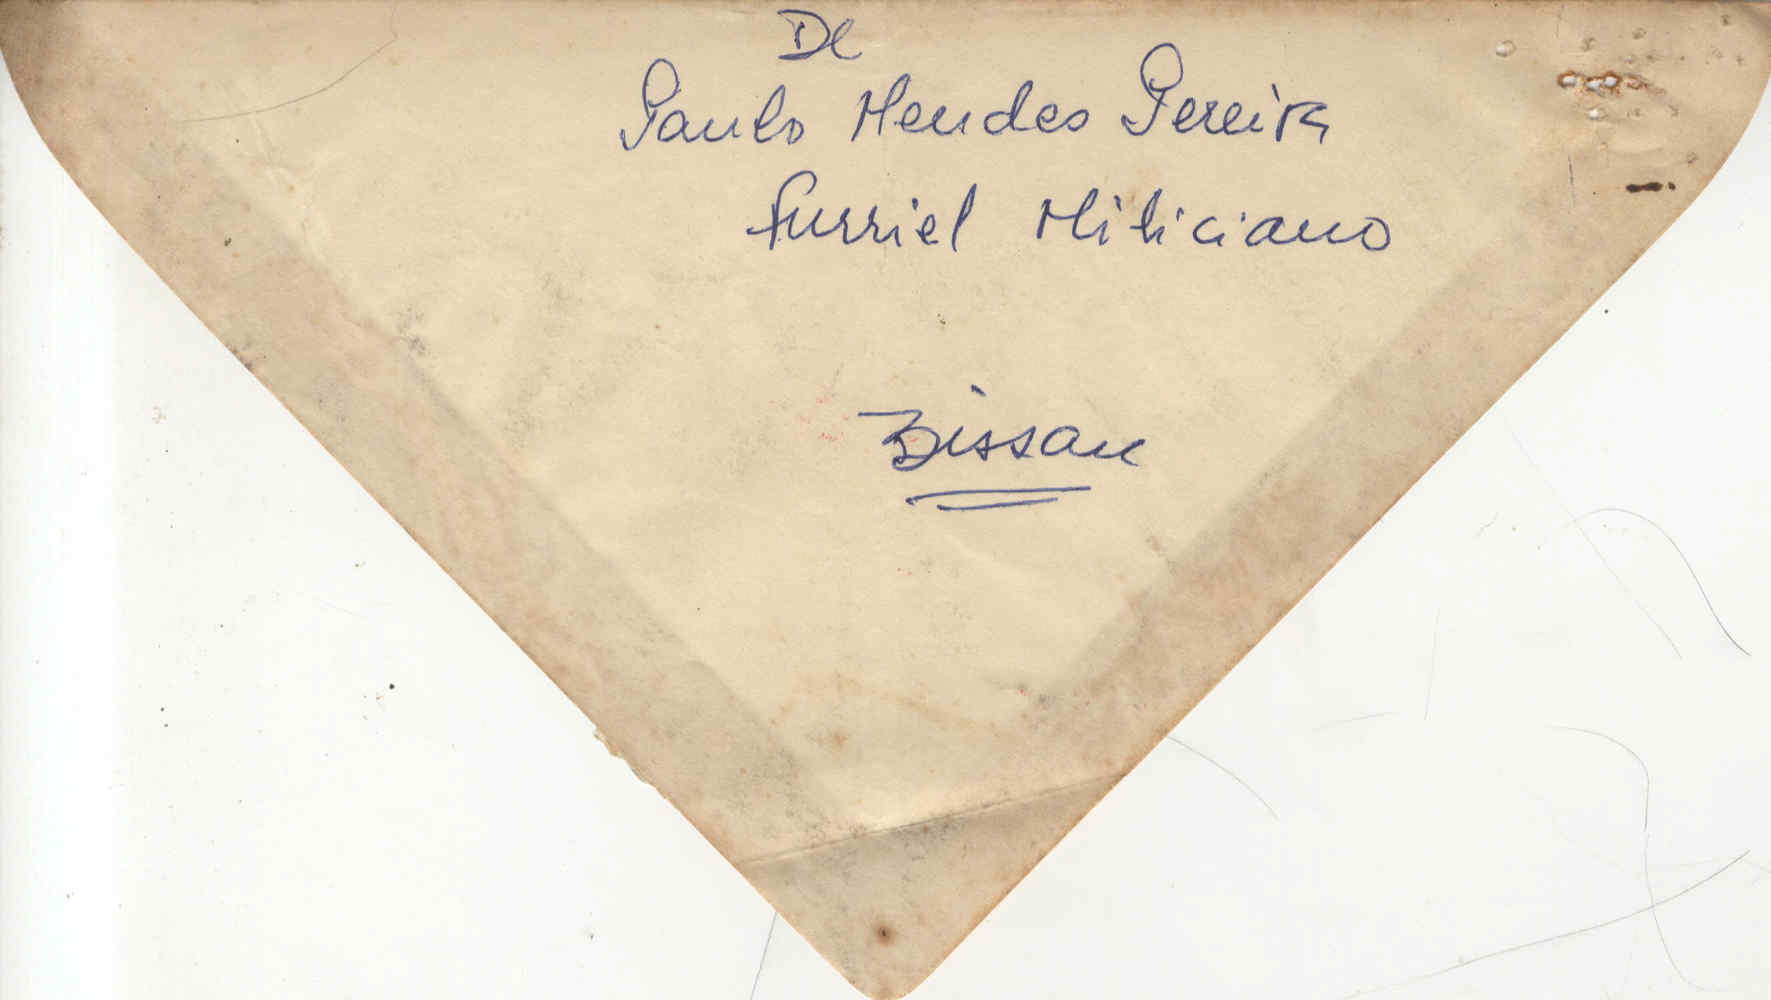 De
Paulo Mendes Pereira
Furriel Miliciano
Bissau